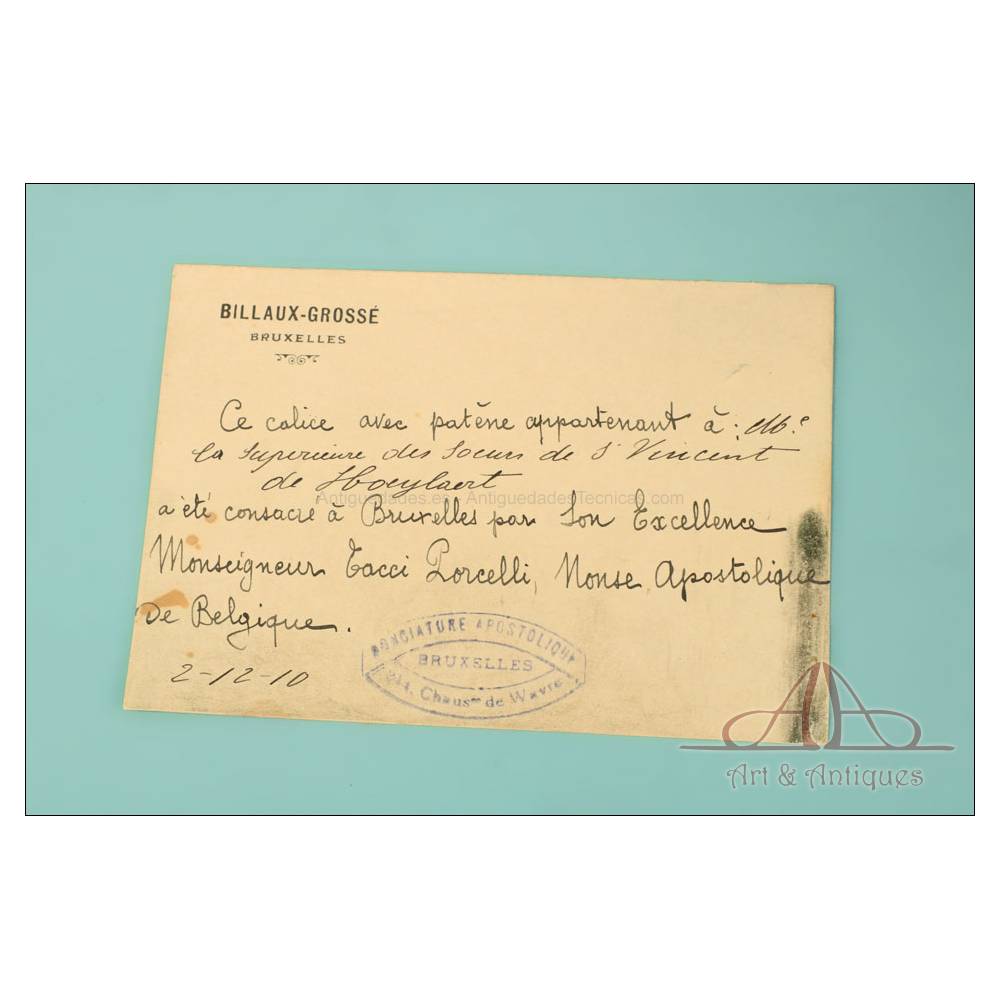 BILLAUX-GROSSÉ
BRUXELLES
Ce calice avec patène appartenant à: Me
la Superieure des Soeurs de St Vincent
de Hoeylaert
Antiguedades.es - AntiguedadesTecnicas.com
a été consacré à Bruxelles par Son Excellence
Monseigneur Tacci Porcelli, Nonse Apostolique
de Belgique.
2-12-10
NONCIATURE APOSTOLIQUE
BRUXELLES
Chausée de Wavre
Art & Antiques